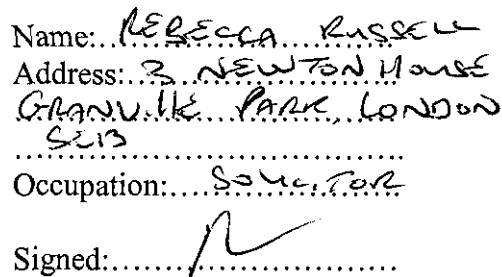 Name: REBECCA RUSSELL
Address: 3 NEWTON HOUSE
GRANVILLE PARK, LONDON
SE13
Occupation: SOLICITOR
Signed: